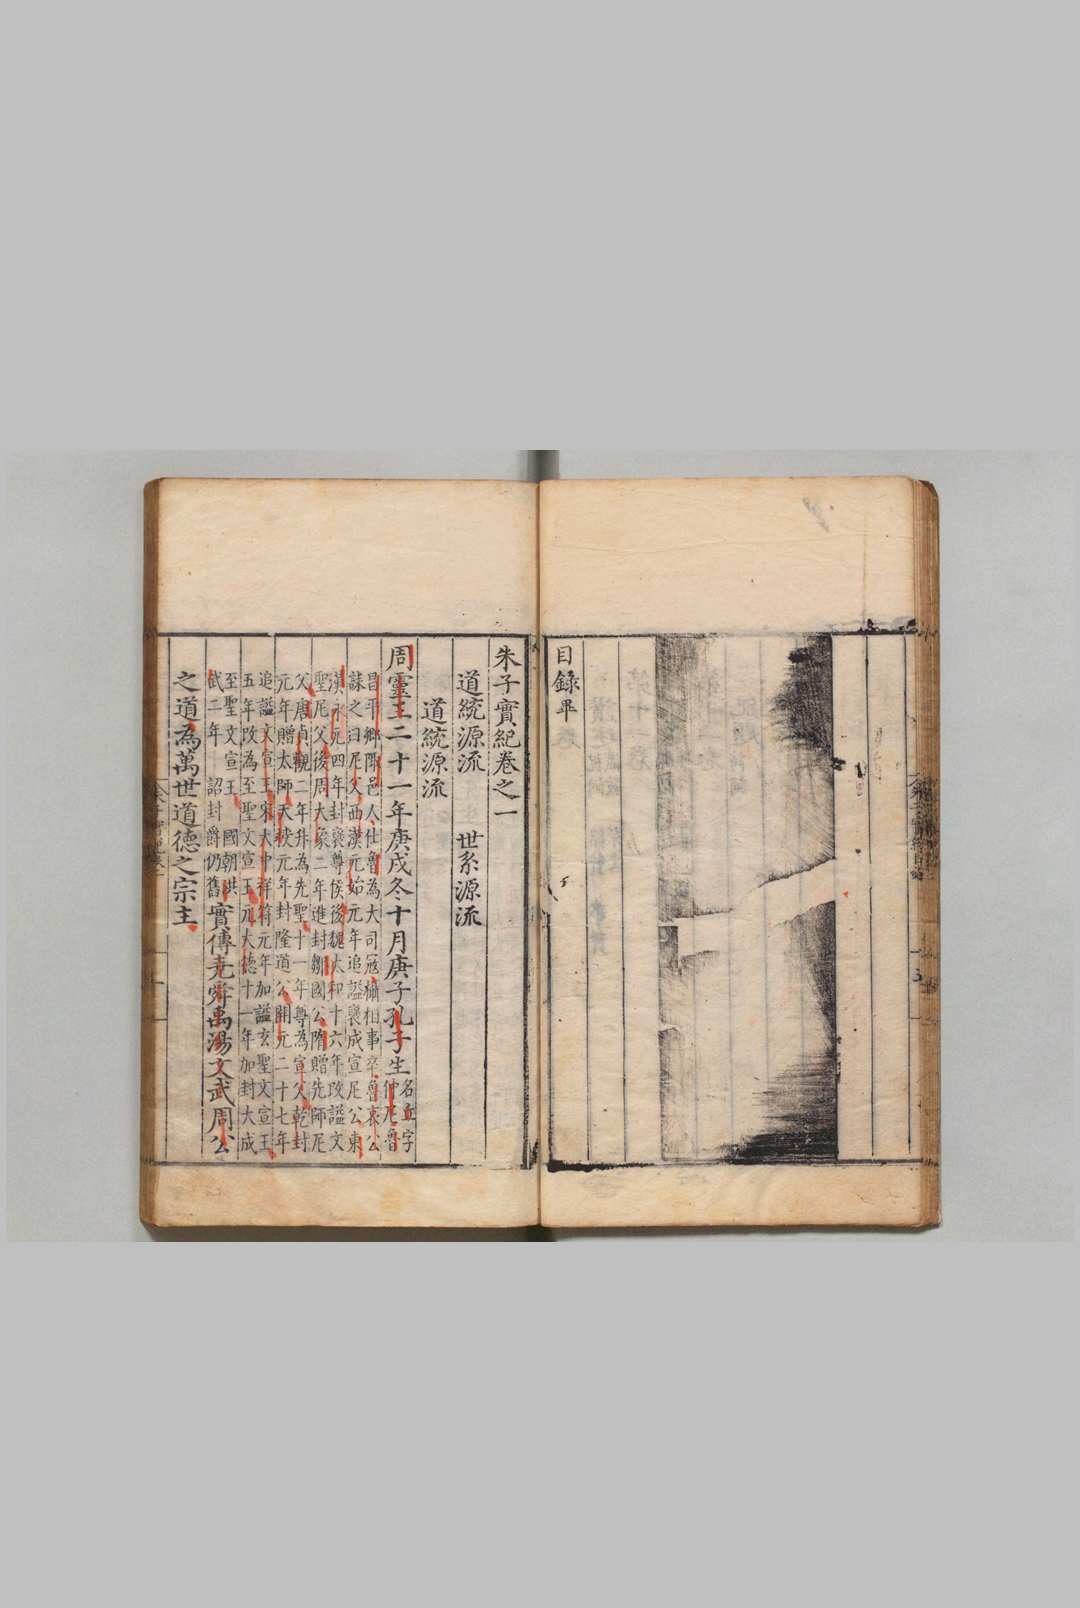 目錄畢
朱子實紀卷之一
道統源流　世系源流
道統源流
周靈王二十一年庚戌冬十月庚子孔子生名丘字仲尼魯
昌平鄉陬邑人仕魯為大司寇攝相事卒魯哀公
誄之曰尼父西漢元始元年追謚褒成宣尼公東
漢永元四年封褒尊侯後魏太和十六年改謚文
聖尼父後周大象二年進封鄒國公隋贈先師尼
父唐貞觀二年升為先聖十一年尊為宣父乾封
元年贈太師天授元年封隆道公開元二十七年
追謚文宣王宋大中祥符元年加謚玄聖文宣王
五年改為至聖文宣王元大德十一年加封大成
至聖文宣王　國朝洪
武二年　詔封爵仍舊實傳堯舜禹湯文武周公
之道為萬世道德之宗主